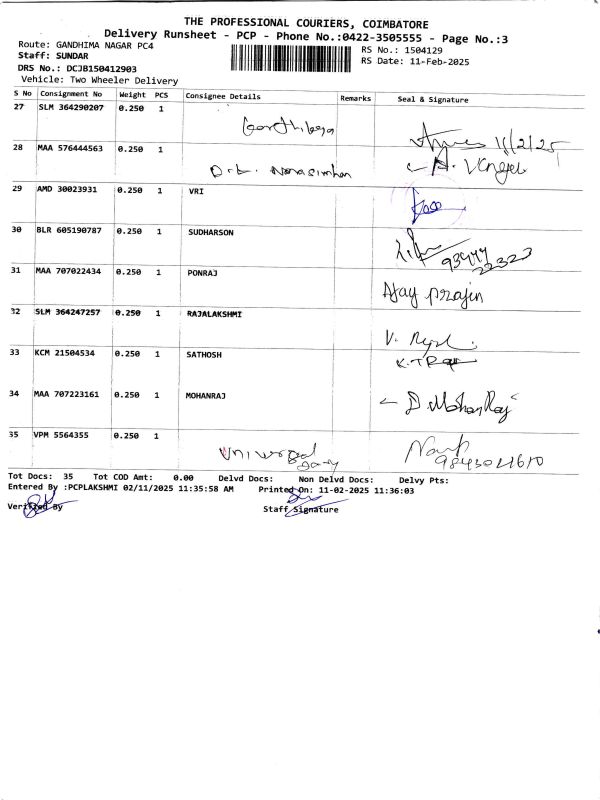 THE PROFESSIONAL COURIERS, COIMBATORE
Delivery Runsheet - PCP - Phone No.:0422-3505555 - Page No.:3
Route: GANDHIMA NAGAR PC4
RS No.: 1504129
Staff: SUNDAR
RS Date: 11-Feb-2025
DRS No.: DCJB150412903
Vehicle: Two Wheeler Delivery
S No Consignment No Weight PCS Consignee Details Remarks Seal & Signature
27 SLM 364290207 0.250 1
28 MAA 576444563 0.250 1
29 AMD 30023931 0.250 1 VRI
30 BLR 605190787 0.250 1 SUDHARSON
31 MAA 707022434 0.250 1 PONRAJ Ajay prajin
32 SLM 364247257 0.250 1 RAJALAKSHMI
33 KCM 21504534 0.250 1 SATHOSH
34 MAA 707223161 0.250 1 MOHANRAJ D. Mohan Raj
35 VPM 5564355 0.250 1
Tot Docs: 35 Tot COD Amt: 0.00 Delvd Docs: Non Delvd Docs: Delvy Pts:
Entered By :PCPLAKSHMI 02/11/2025 11:35:58 AM Printed On: 11-02-2025 11:36:03
Verified By Staff Signature